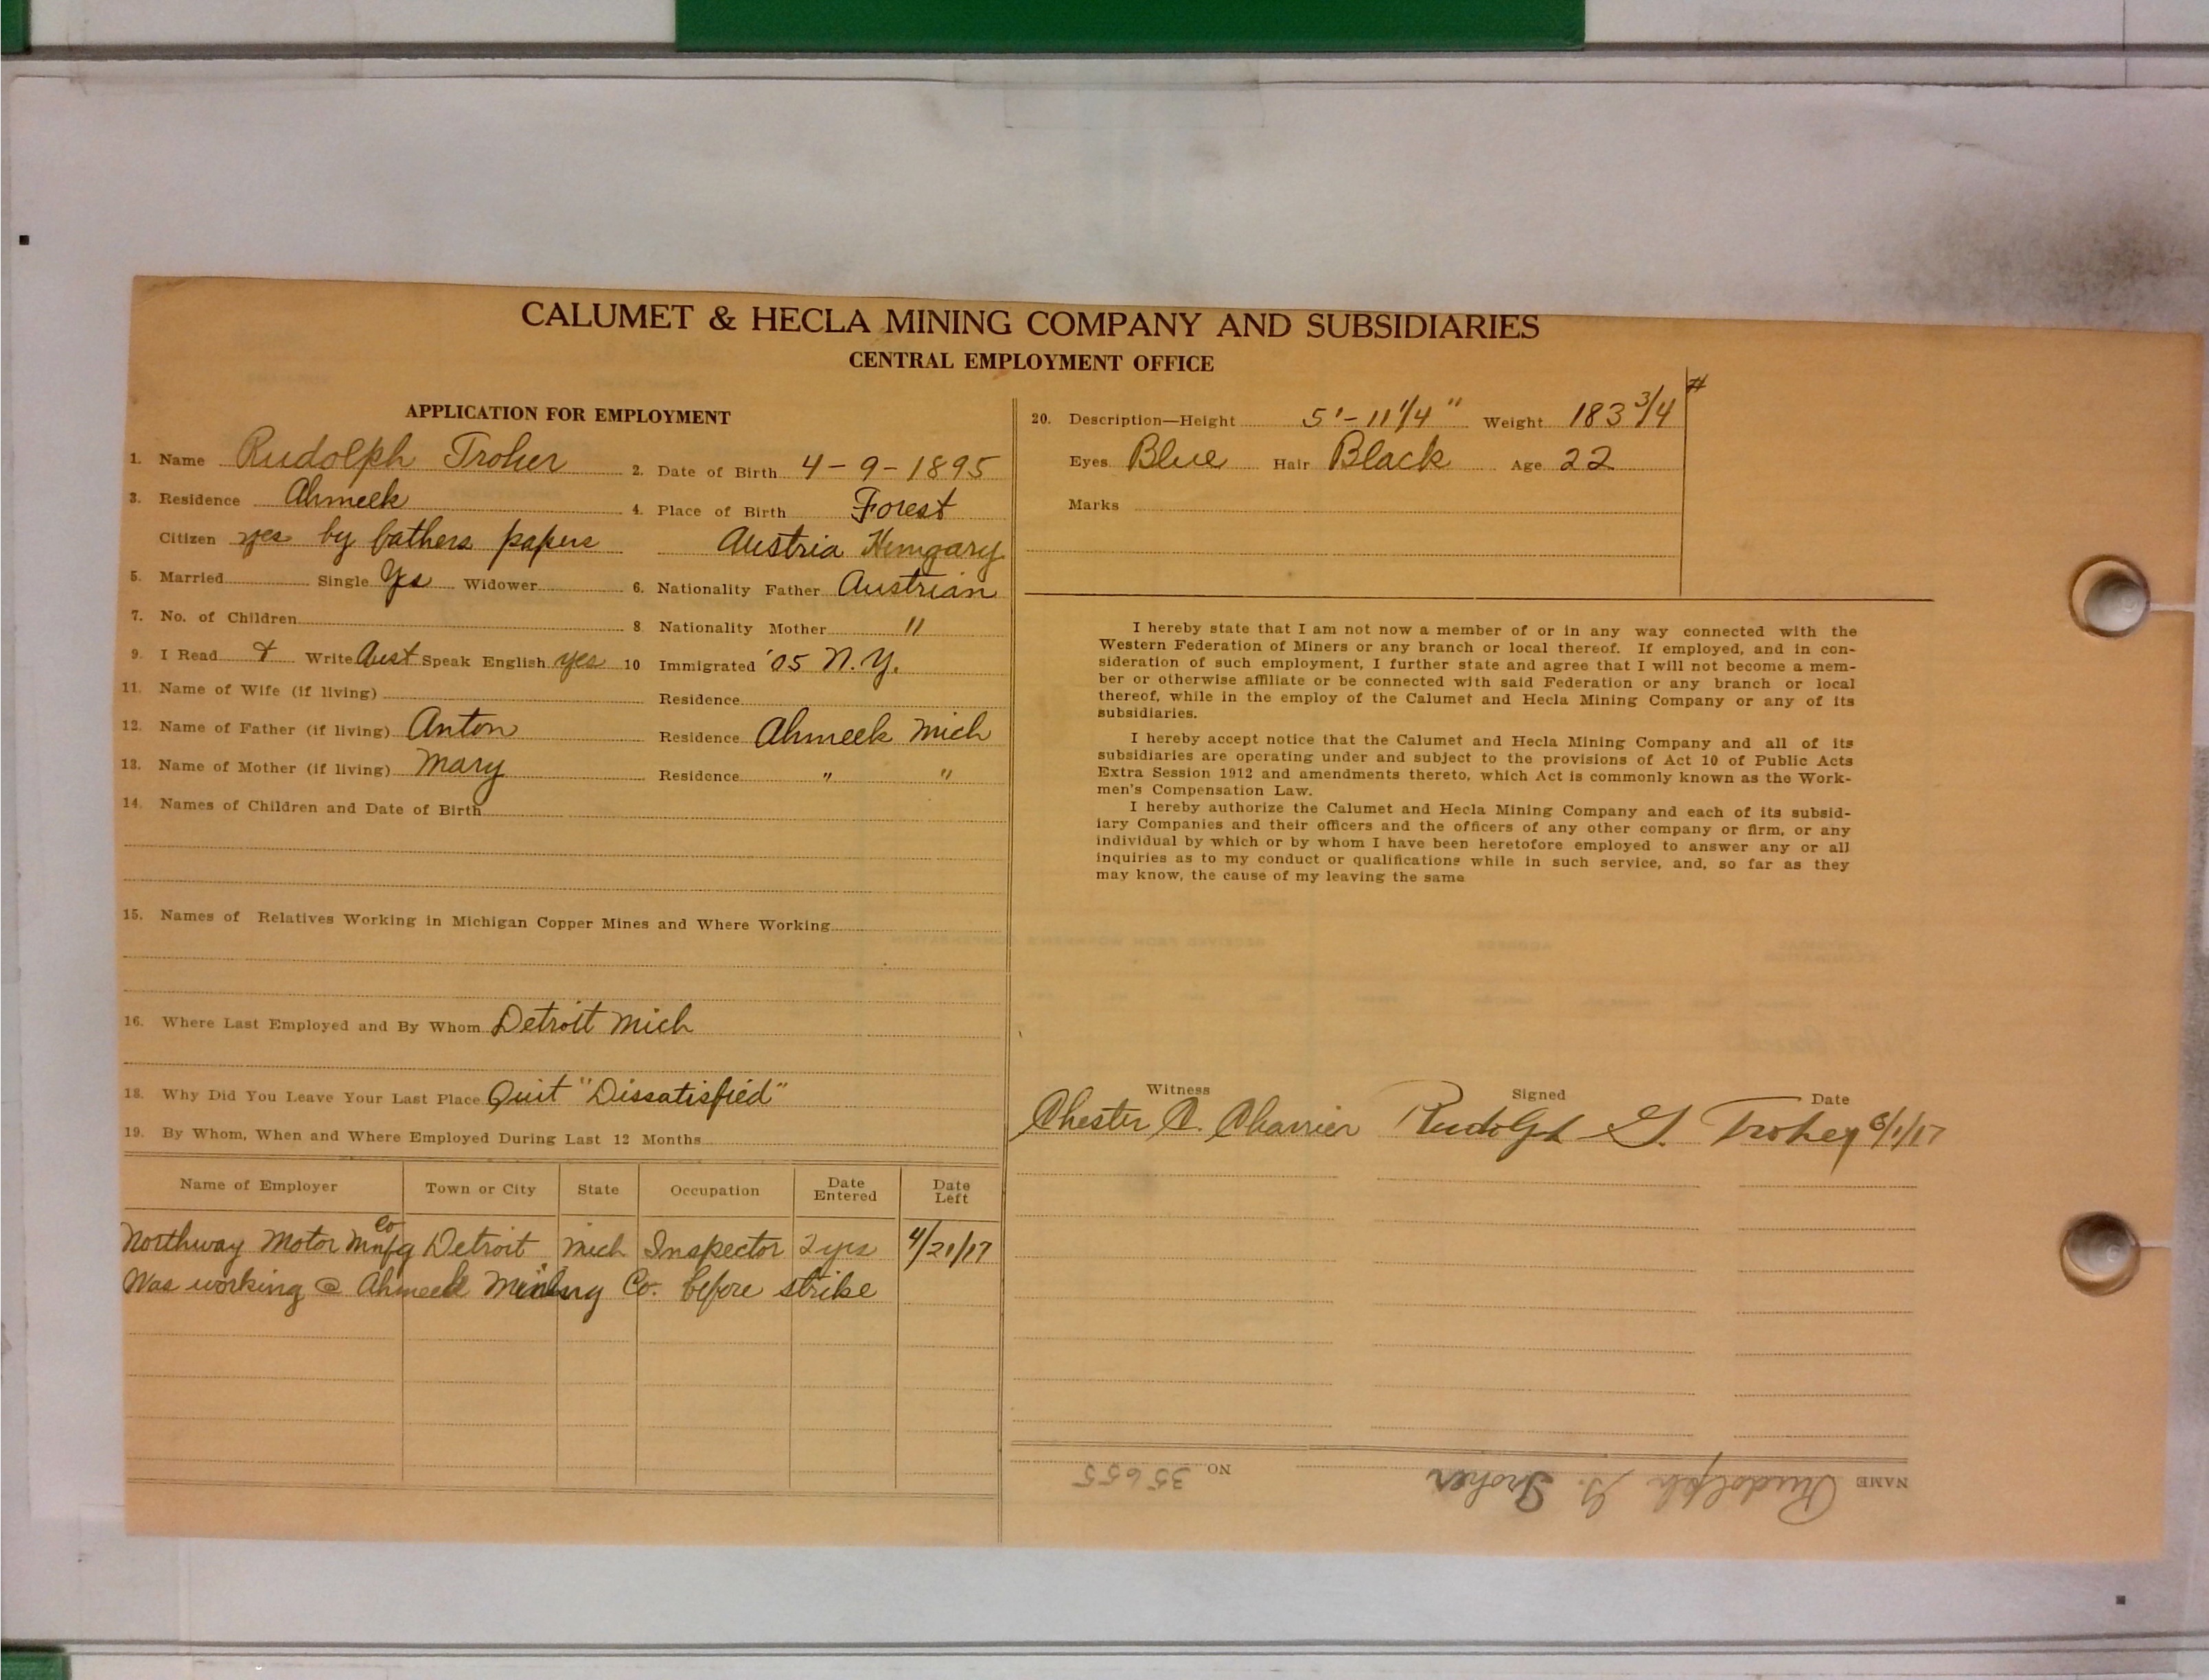 CALUMET & HECLA MINING COMPANY AND SUBSIDIARIES
CENTRAL EMPLOYMENT OFFICE
APPLICATION FOR EMPLOYMENT
1. Name Rudolph Troher 2. Date of Birth 4-9-1895
3. Residence Ahmeek 4. Place of Birth Forest
Citizen yes by fathers papers Austria Hungary
5. Married Single Yes Widower 6. Nationality Father Austrian
7. No. of Children 8 Nationality Mother "
9. I Read + Write Aust Speak English yes 10 Immigrated '05 N.Y.
11. Name of Wife (if living) Residence
12. Name of Father (if living) Anton Residence Ahmeek Mich
13. Name of Mother (if living) Mary Residence " "
14. Names of Children and Date of Birth
15. Names of Relatives Working in Michigan Copper Mines and Where Working
16. Where Last Employed and By Whom Detroit Mich
18. Why Did You Leave Your Last Place Quit "Dissatisfied"
19. By Whom, When and Where Employed During Last 12 Months
Name of Employer Town or City State Occupation Date Entered Date Left
Northway Motor Mnfg Co Detroit Mich Inspector 2 yrs 4/21/17
Was working @ Ahmeek Mining Co. before strike
20. Description—Height 5'-11 1/4" Weight 183 3/4 #
Eyes Blue Hair Black Age 22
Marks
I hereby state that I am not now a member of or in any way connected with the
Western Federation of Miners or any branch or local thereof. If employed, and in con-
sideration of such employment, I further state and agree that I will not become a mem-
ber or otherwise affiliate or be connected with said Federation or any branch or local
thereof, while in the employ of the Calumet and Hecla Mining Company or any of its
subsidiaries.
I hereby accept notice that the Calumet and Hecla Mining Company and all of its
subsidiaries are operating under and subject to the provisions of Act 10 of Public Acts
Extra Session 1912 and amendments thereto, which Act is commonly known as the Work-
men's Compensation Law.
I hereby authorize the Calumet and Hecla Mining Company and each of its subsid-
iary Companies and their officers and the officers of any other company or firm, or any
individual by which or by whom I have been heretofore employed to answer any or all
inquiries as to my conduct or qualifications while in such service, and, so far as they
may know, the cause of my leaving the same
Witness Signed Date
Chester C. Charrier Rudolph G. Troher 6/1/17
NAME Rudolph G. Troher NO. 35655